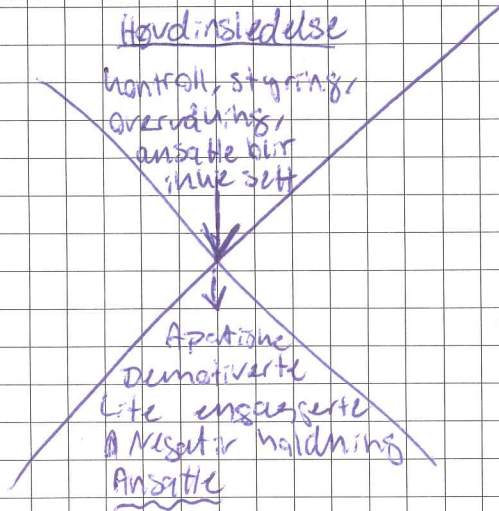 Høvdinsledelse
kontroll, styring,
overvåning,
ansatte blir
ikke sett
Apatiske
Demotiverte
Lite engasjerte
Negativ holdning
Ansatte